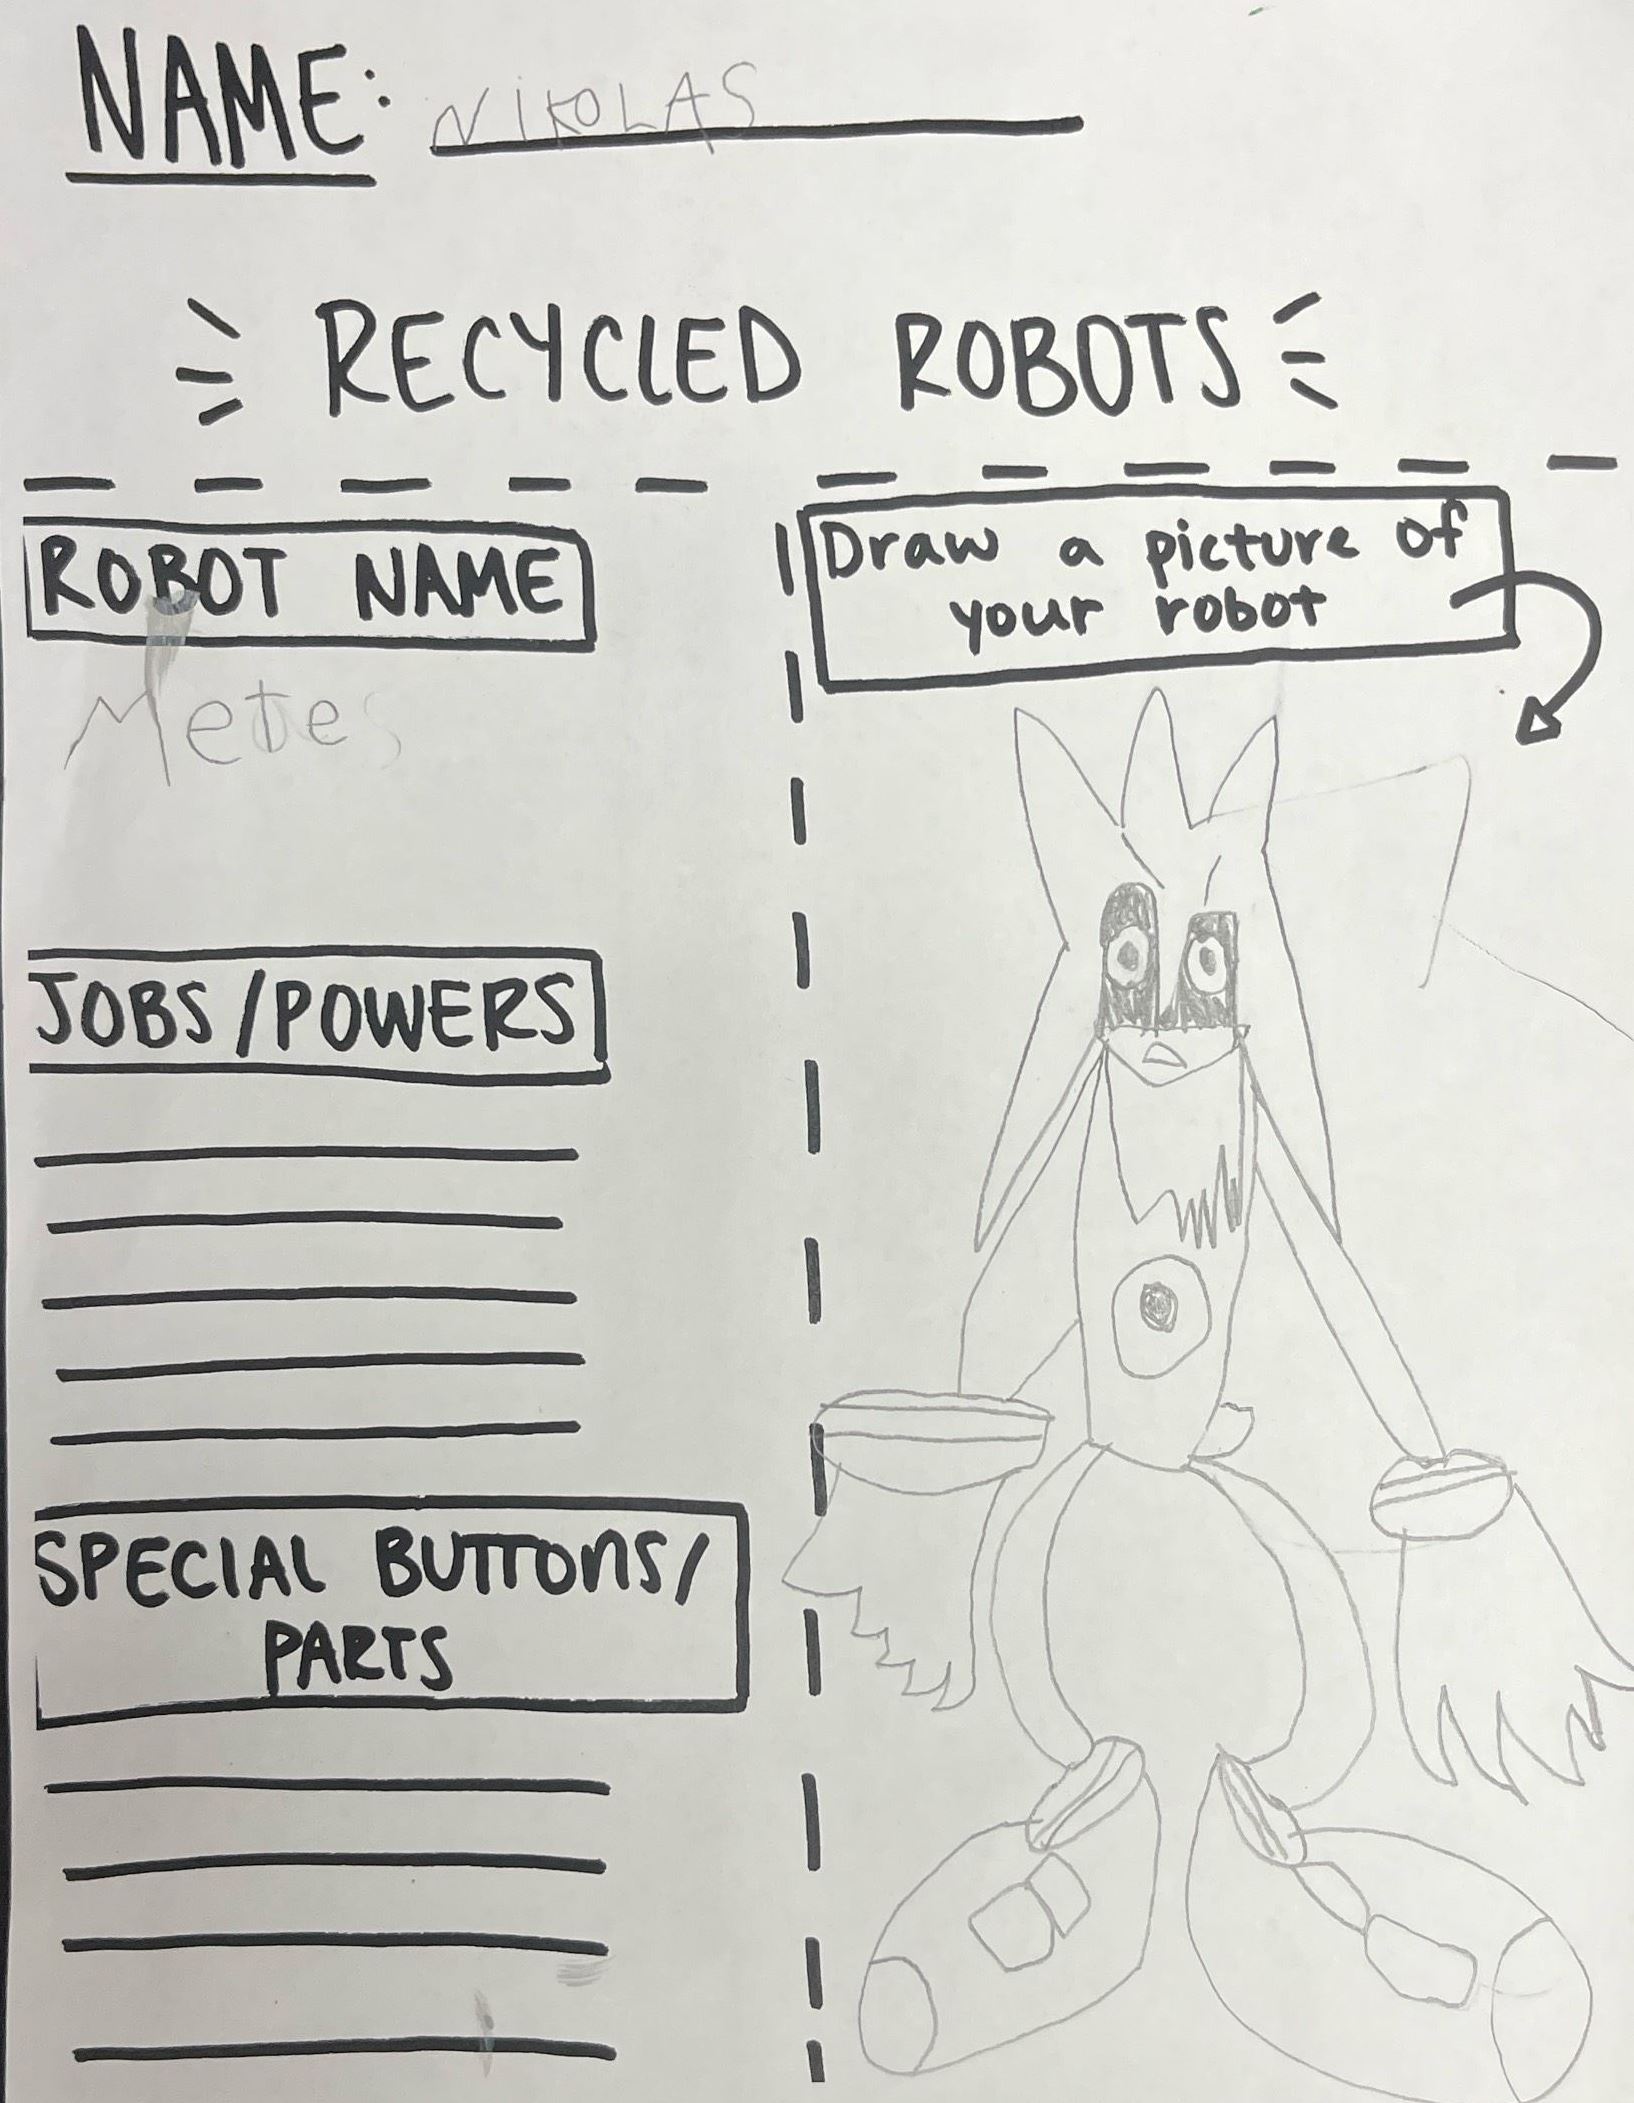 NAME: NIKOLAS
RECYCLED ROBOTS
ROBOT NAME
Draw a picture of
your robot
JOBS/POWERS
SPECIAL BUTTONS/
PARTS